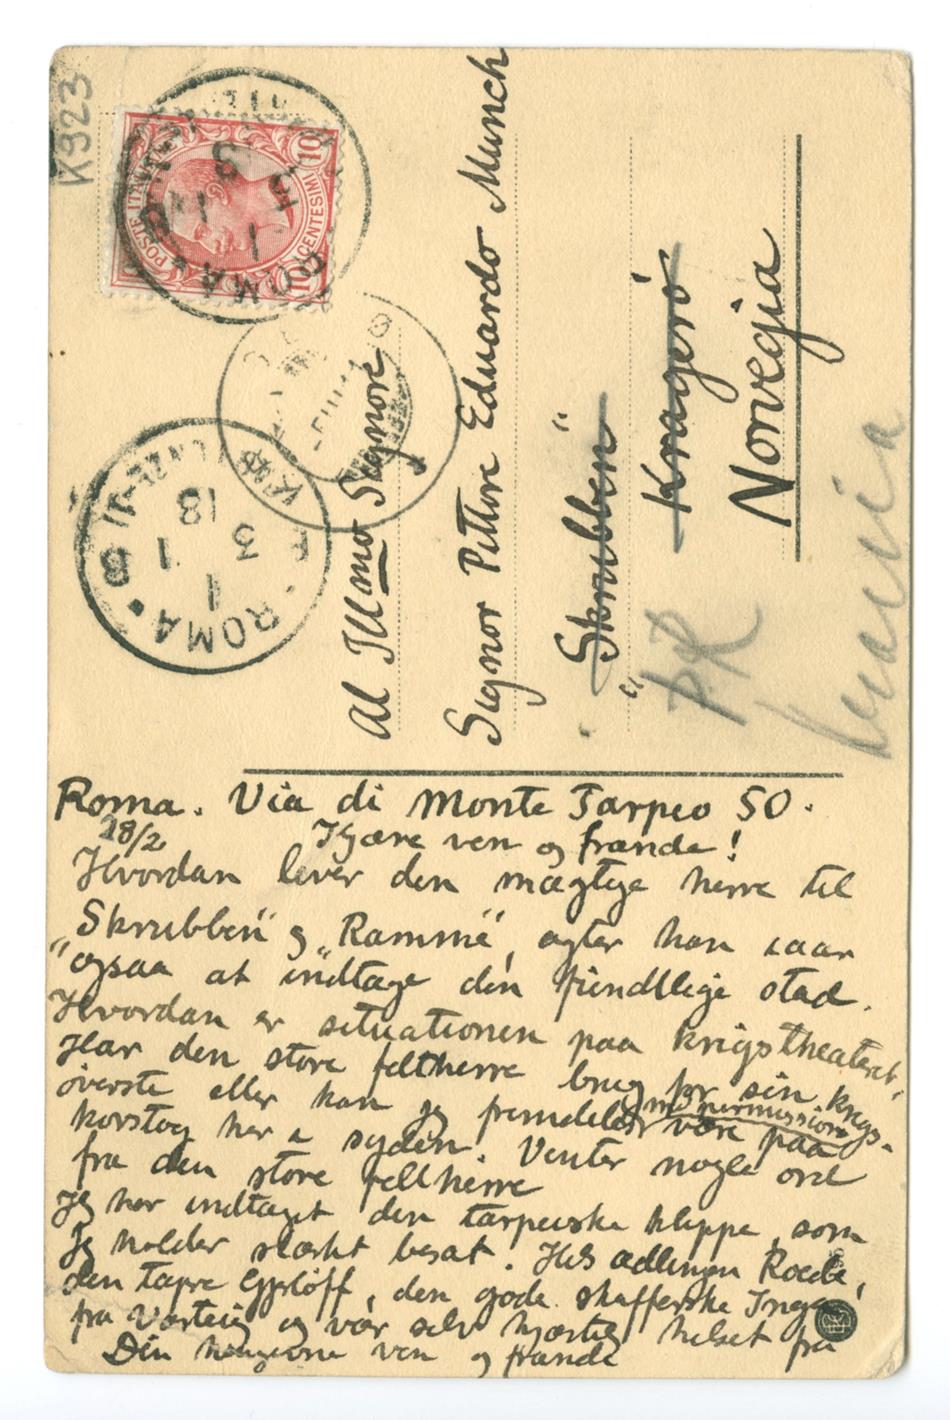 K923
POSTE ITALIANE
10
CENTESIMI
10
ROMA
ROMA
1 3
1
13
Al Illmo Signore
Signor Pittore Eduardo Munch
"Skrubben"
Kragerö
Norvegia
Roma. Via di Monte Tarpeo 50.
28/2
Kjære ven og frænde!
Hvordan lever den mægtige herre til
"Skrubben" og "Ramme", agter han iaar
ogsaa at indtage den fiendtlige stad.
Hvordan er situationen paa krigstheatret.
Har den store feltherre brug for sin krigs-
överste eller kan jeg fremdeles være paa
(m permission)
korstog her i syden. Venter nogle ord
fra den store feltherre
Jeg har indtaget den tarpeiske klippe, som
jeg holder stærkt besat. Hils adlingen Roede,
den tapre Gjerlöff, den gode skafferske Inga
fra Varteig og vær selv hjærtelig hilset fra
Din hengivne ven og frænde